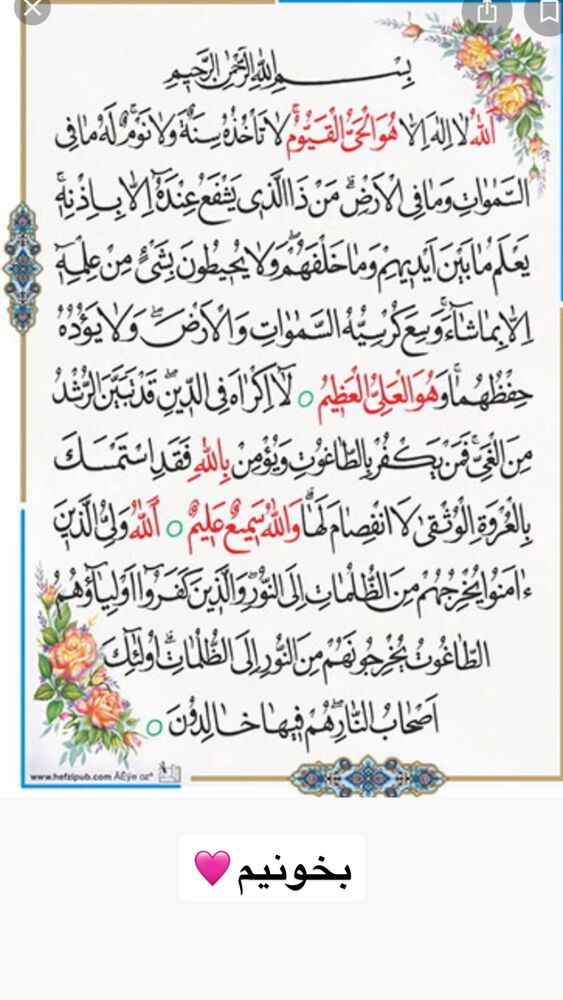 بِسْمِ اللهِ الرَّحْمٰنِ الرَّحِيمِ
اَللهُ لَا اِلٰهَ اِلَّا هُوَ الْحَيُّ الْقَيُّومُ ۚ لَا تَأْخُذُهُ سِنَةٌ وَلَا نَوْمٌ ۚ لَهُ مَا فِى
السَّمٰوَاتِ وَمَا فِى الْاَرْضِ ۗ مَنْ ذَا الَّذِى يَشْفَعُ عِنْدَهُ اِلَّا بِاِذْنِهِ ۚ
يَعْلَمُ مَا بَيْنَ اَيْدِيهِمْ وَمَا خَلْفَهُمْ ۖ وَلَا يُحِيطُونَ بِشَىْءٍ مِنْ عِلْمِهِ
اِلَّا بِمَا شَاءَ ۚ وَسِعَ كُرْسِيُّهُ السَّمٰوَاتِ وَالْاَرْضَ ۖ وَلَا يَؤُدُهُ
حِفْظُهُمَا ۚ وَهُوَ الْعَلِىُّ الْعَظِيمُ ○ لَا اِكْرَاهَ فِى الدِّينِ ۖ قَدْ تَبَيَّنَ الرُّشْدُ
مِنَ الْغَىِّ ۚ فَمَنْ يَكْفُرْ بِالطَّاغُوتِ وَيُؤْمِنْ بِاللهِ فَقَدِ اسْتَمْسَكَ
بِالْعُرْوَةِ الْوُثْقٰى لَا انْفِصَامَ لَهَا ۗ وَاللهُ سَمِيعٌ عَلِيمٌ ○ اَللهُ وَلِىُّ الَّذِينَ
ءَامَنُوا يُخْرِجُهُمْ مِنَ الظُّلُمَاتِ اِلَى النُّورِ ۖ وَالَّذِينَ كَفَرُوا اَوْلِيَاؤُهُمُ
الطَّاغُوتُ يُخْرِجُونَهُمْ مِنَ النُّورِ اِلَى الظُّلُمَاتِ ۗ اُولٰئِكَ
اَصْحَابُ النَّارِ ۖ هُمْ فِيهَا خَالِدُونَ ○
www.hefzipub.com
بخونیم🩷